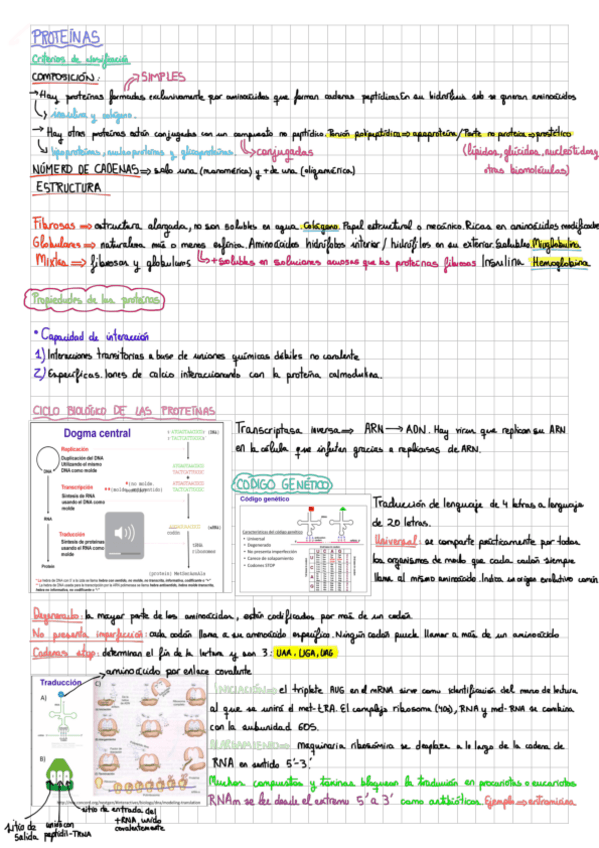 PROTEÍNAS
Criterios de clasificación
COMPOSICIÓN: SIMPLES
→ Hay proteínas formadas exclusivamente por aminoácidos que forman cadenas peptídicas. En su hidrólisis solo se generan aminoácidos
insulina y colágeno
→ Hay otras proteínas están conjugadas con un compuesto no peptídico. Porción polipeptídica ⇒ apoproteína / Parte no proteica ⇒ prostético
lipoproteínas, nucleoproteínas y glicoproteínas conjugadas (lípidos, glúcidos, nucleótidos y
NÚMERO DE CADENAS ⇒ solo una (monomérica) y + de una (oligomérica) otras biomoléculas)
ESTRUCTURA
Fibrosas ⇒ estructura alargada, no son solubles en agua. Colágeno. Papel estructural o mecánico. Ricas en aminoácidos modificados
Globulares ⇒ naturaleza más o menos esférica. Aminoácidos hidrófobos interior / hidrófilos en su exterior. Solubles. Mioglobina
Mixta ⇒ fibrosas y globulares + solubles en soluciones acuosas que las proteínas fibrosas Insulina Hemoglobina
Propiedades de las proteínas
• Capacidad de interacción
1) Interacciones transitorias a base de uniones químicas débiles no covalente
2) Específicas. Iones de calcio interaccionando con la proteína calmodulina.
CICLO BIOLÓGICO DE LAS PROTEÍNAS
Dogma central
Replicación
Duplicación del DNA
Utilizando el mismo
DNA como molde
DNA
Transcripción
Síntesis de RNA
usando el DNA
como molde
RNA
Traducción
Síntesis de proteínas
usando el RNA
como molde
Proteín
Transcriptasa inversa ⇒ ARN → ADN. Hay virus que replican su ARN
en la célula que infectan gracias a replicasas de ARN.
CÓDIGO GENÉTICO
Código genético
Características del código genético
• Universal
• Degenerado
• No presenta imperfección
• Carece de solapamiento
• Codones STOP
Traducción de lenguaje de 4 letras a lenguaje
de 20 letras.
Universal: se comparte prácticamente por todos
los organismos de modo que cada codón siempre
llama al mismo aminoácido. Indica un origen evolutivo común
Degenerado: la mayor parte de los aminoácidos, están codificados por más de un codón.
No presenta imperfección: cada codón llama a su aminoácido específico. Ningún codón puede llamar a más de un aminoácido
Codones stop: determinan el fin de la lectura y son 3: UAA, UGA, UAG
aminoácido por enlace covalente
Traducción
A)
B)
C)
INICIACIÓN ⇒ el triplete AUG en el mRNA sirve como identificación del marco de lectura
al que se unirá el met-tRA. El complejo ribosoma (40s), RNA y met-RNA se combina
con la subunidad 60S.
ALARGAMIENTO ⇒ maquinaria ribosómica se desplaza a lo largo de la cadena de
RNA en sentido 5'-3'
Muchos compuestos y toxinas bloquean la traducción en procariotas o eucariotas
RNAm se lee desde el extremo 5' a 3' como antibióticos Ejemplo ⇒
sitio de salida
unión con peptidil-tRNA
sitio de entrada del tRNA unido covalentemente